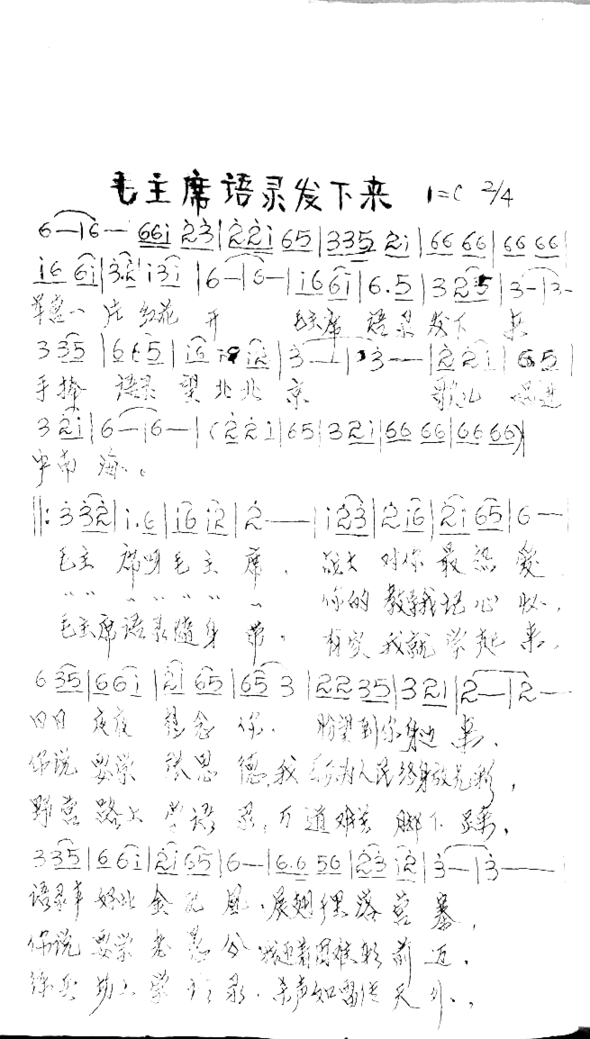 毛主席语录发下来 1=C 2/4
6 — | 6 — | 66i 23 | 22i 65 | 335 2i | 66 66 | 66 66 |
i6 6i | 32 i3i | 6 — | 6 — | i6 6i | 6.5 | 3 2 5 | 3 — | 3 —
军营一片红花开 毛主席语录发下来
3 35 | 6 65 | i6 i2 | 3 — | 3 — | 2 2i | 65 |
手捧语录望北京 歌儿唱进
3 2i | 6 — | 6 — | (2 2i | 65 | 3 2i | 66 66 | 66 66) |
中南海。
||: 3 32 | i.6 | i6 i2 | 2 — | i 23 | 2 i6 | 2i 65 | 6 —
毛主席呀毛主席, 战士对你最热爱
" " " " " " " 你的教我记心
毛主席语录随身带, 有空我就学起来,
6 35 | 6 6i | 2i 65 | 65 3 | 22 35 | 3 2i | 2 — | 2 —
日日夜夜想念你. 盼望到你身边来,
你说要学张思德,我 为人民终身放光彩,
野营路上学语录,万道难关脚下踩,
3 35 | 6 6i | 2i 65 | 6 — | 6.6 56 | 23 i2 | 3 — | 3 —
语录
你说要学老愚公 困难 前迈,
练兵场上学语录, 杀声如雷 天外,